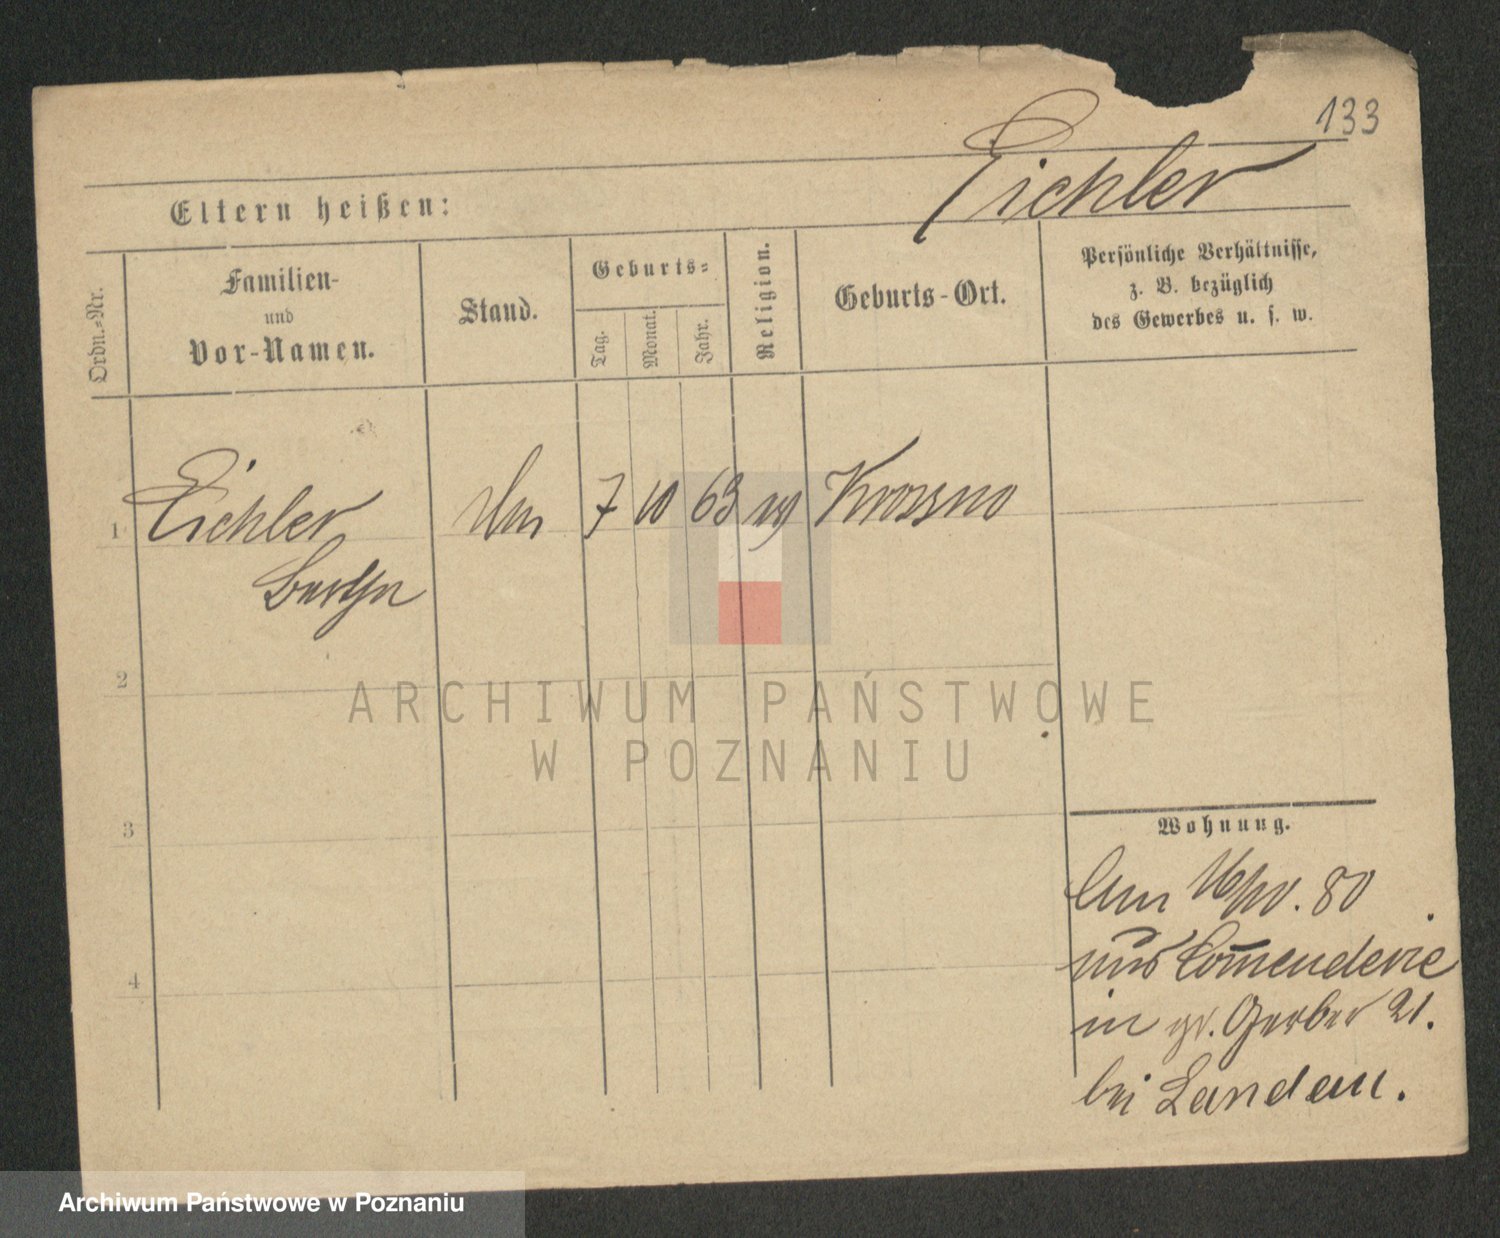 133
Eichler
Eltern heißen:
Ordn.=Nr.
Familien-
und
Vor-Namen.
Stand.
Geburts=
Tag.
Monat.
Jahr.
Religion.
Geburts-Ort.
Persönliche Verhältnisse,
z. B. bezüglich
des Gewerbes u. s. w.
1 Eichler 7 10 63 Krossno
Bertha
2
ARCHIWUM PAŃSTWOWE
W POZNANIU
3
Wohnung.
80
4 aus Com̅enderie
in gr. Gerber 21.
bei Landau.
Archiwum Państwowe w Poznaniu